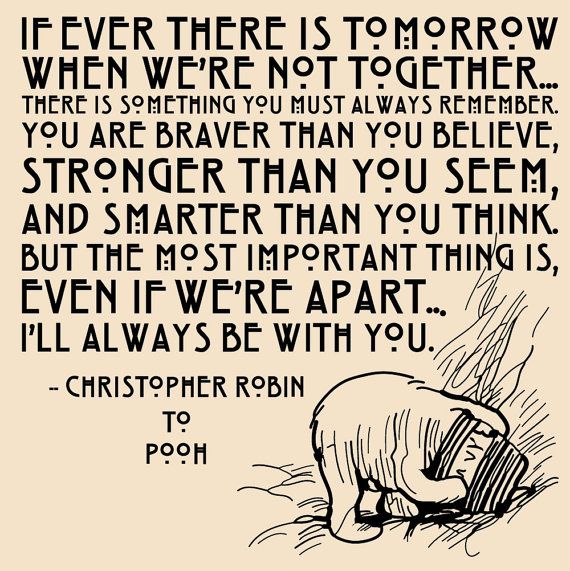 IF EVER THERE IS TOMORROW
WHEN WE'RE NOT TOGETHER...
THERE IS SOMETHING YOU MUST ALWAYS REMEMBER.
YOU ARE BRAVER THAN YOU BELIEVE,
STRONGER THAN YOU SEEM,
AND SMARTER THAN YOU THINK.
BUT THE MOST IMPORTANT THING IS,
EVEN IF WE'RE APART...
I'LL ALWAYS BE WITH YOU.
-- CHRISTOPHER ROBIN
TO
POOH